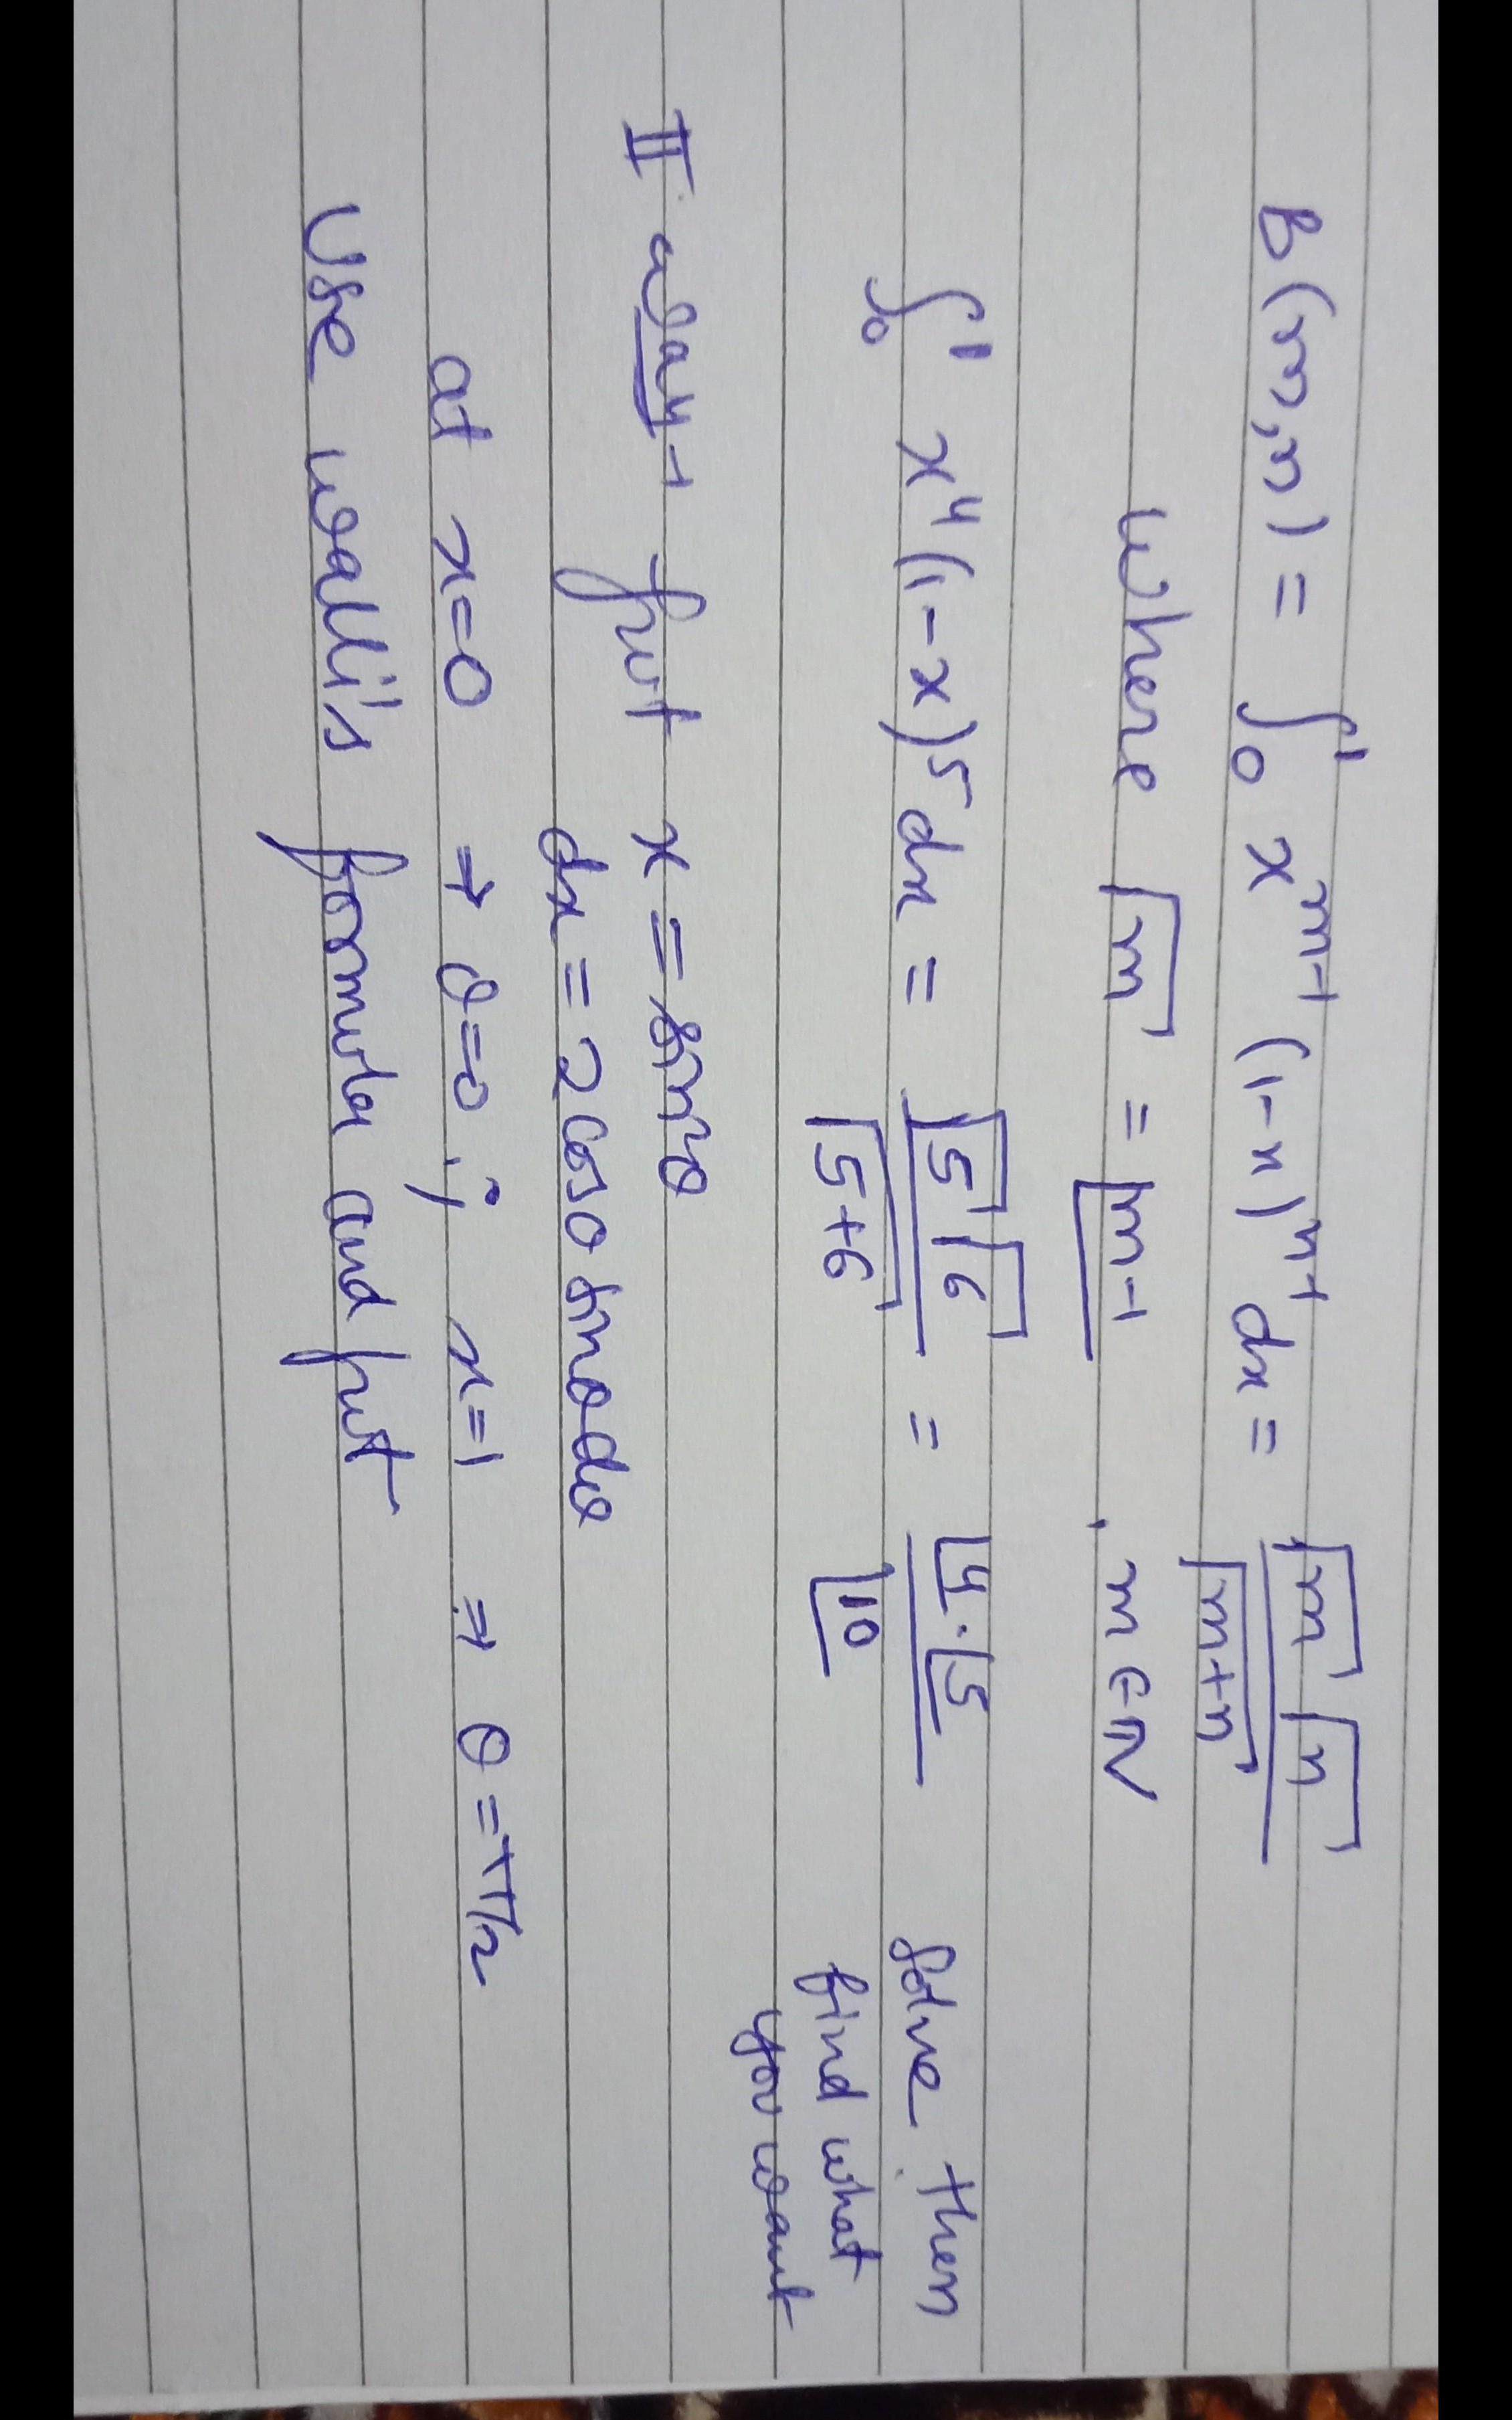 B(m,n) = ∫₀¹ x^{m-1} (1-x)^{n-1} dx = \frac{Γm Γn}{Γm+n}
where Γm = |m-1 , m ∈ N
∫₀¹ x⁴ (1-x)⁵ dx = \frac{Γ5 Γ6}{Γ5+6} = \frac{|4 · |5}{|10} solve then
find what
you want
II way → put x = sin²θ
dx = 2 cosθ sinθ dθ
at x=0 ⇒ θ=0 ; x=1 ⇒ θ = π/2
Use walli's formula and put